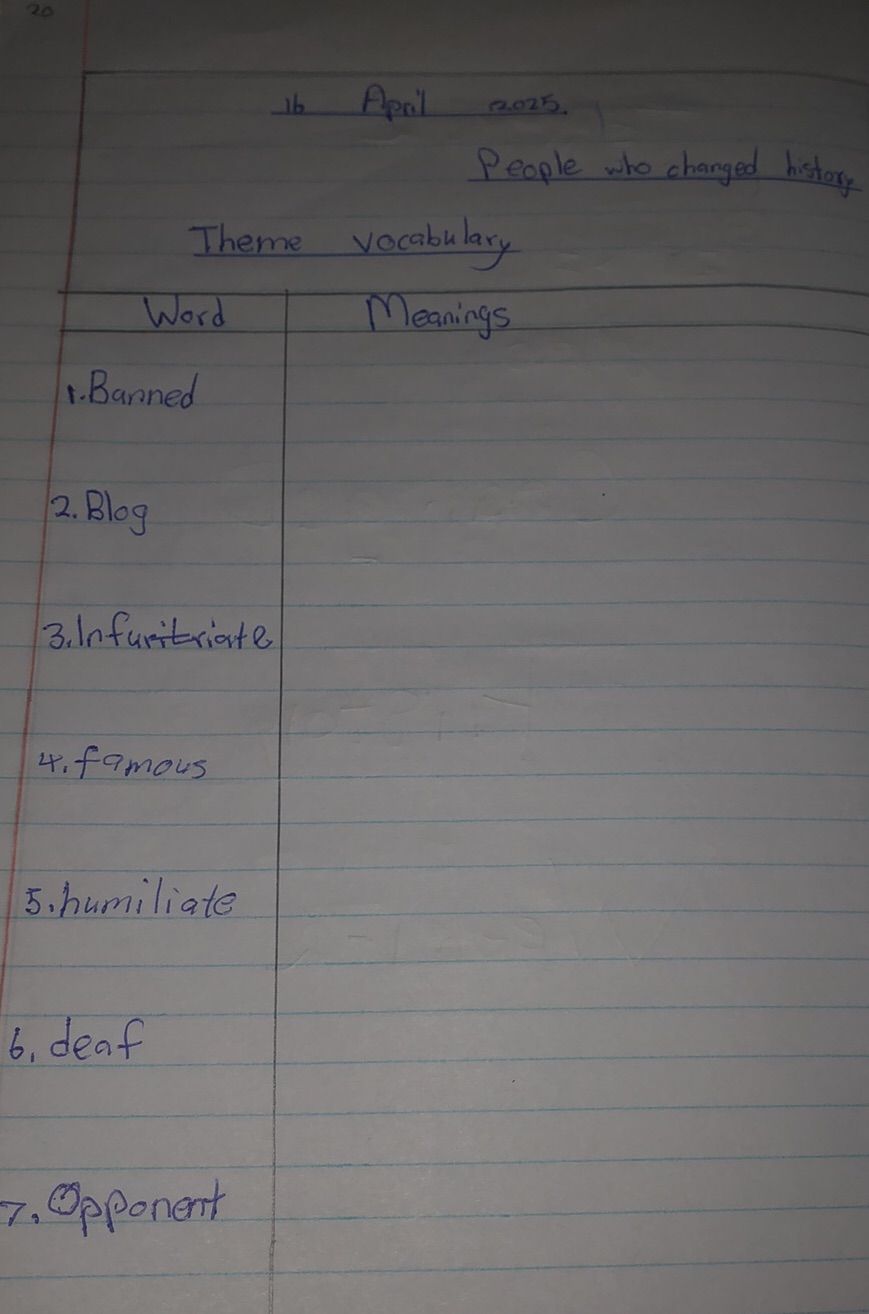 20
16 April 2025
People who changed history
Theme vocabulary
Word Meanings
1. Banned
2. Blog
3. Infuriate
4. famous
5. humiliate
6. deaf
7. Opponent